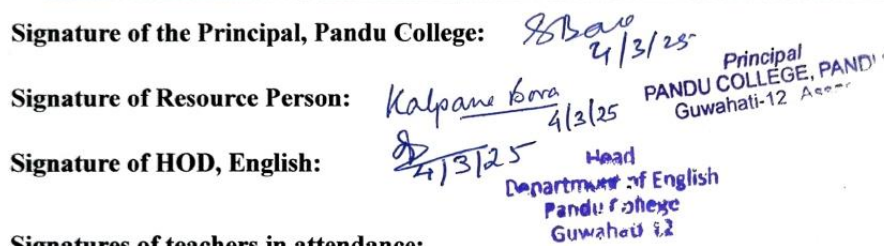 Signature of the Principal, Pandu College: SBora 4/3/25
Principal
PANDU COLLEGE, PANDU
Guwahati-12
Signature of Resource Person: Kalpana Bora 4/3/25
Signature of HOD, English: 4/3/25
Head
Department of English
Pandu College
Guwahati 12
Signatures of teachers in attendance: